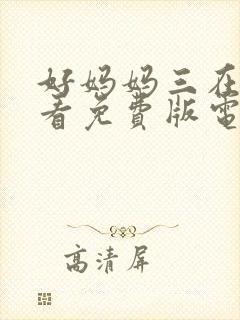 好妈妈三在
看免費版電
高清屏